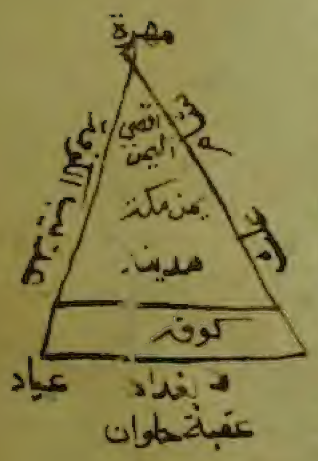 مهرة
اقصى
اليمن
يمن مكة
مدينة
كوفة
عباد
بغداد
عقبة حلوان